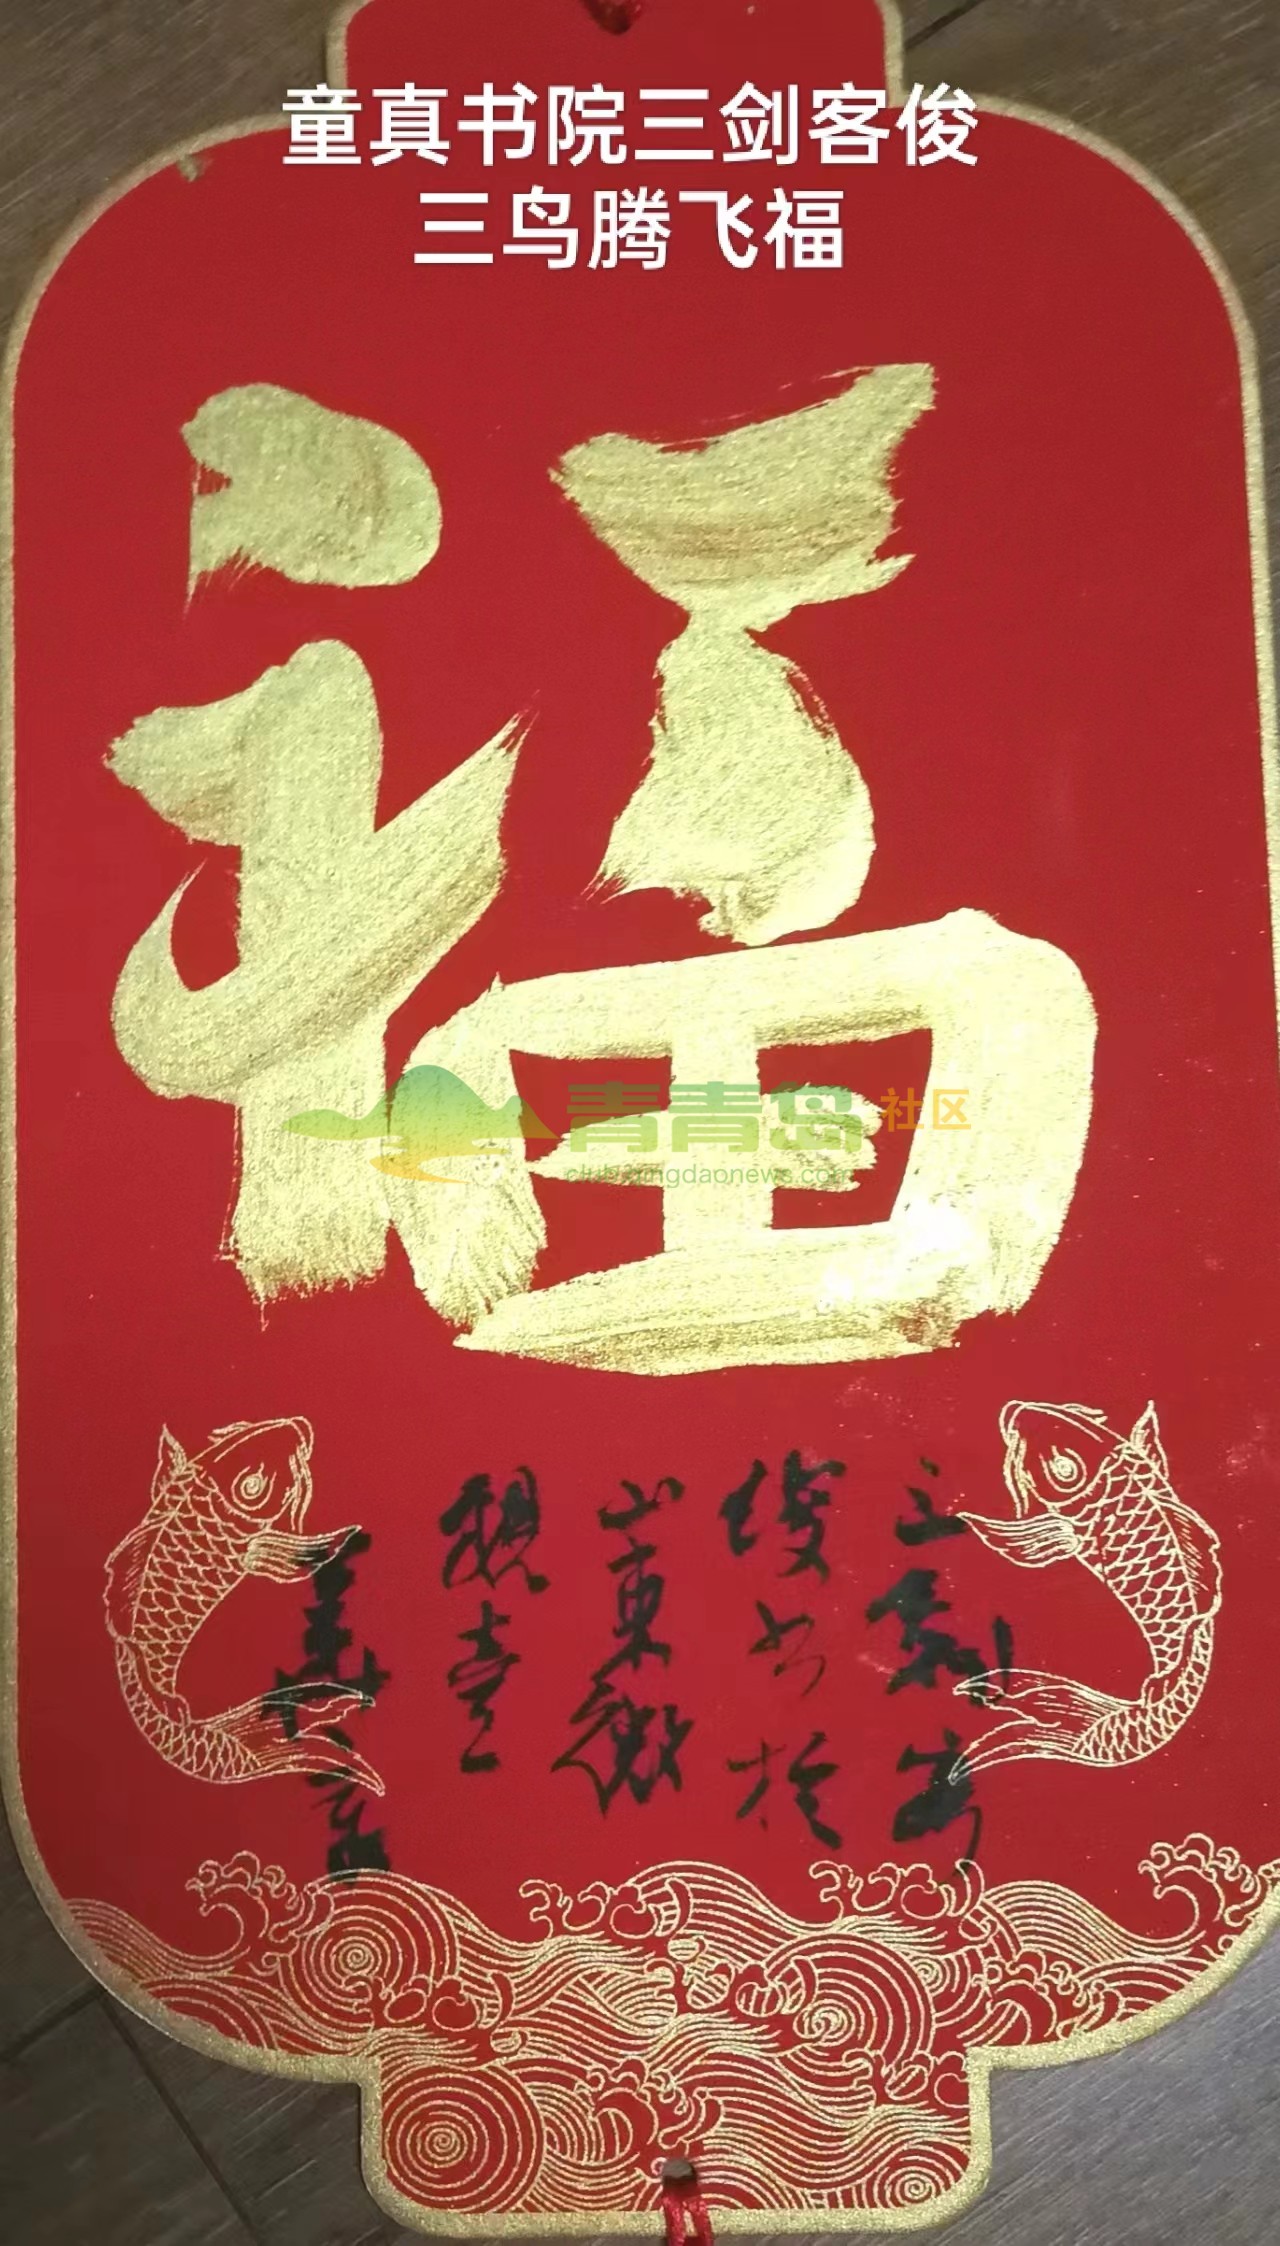 童真书院三剑客俊
三鸟腾飞福
福
青青岛社区
club.qingdaonews.com
三剑客
俊书于
山东微
观壹